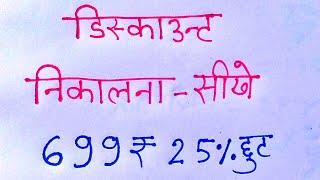 डिस्काउन्ट
निकालना - सीखे
699₹ 25% छुट